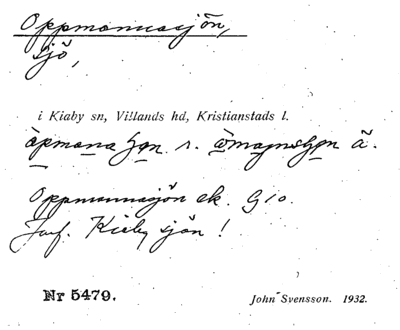 Oppmannasjön,
sjö,
i Kiaby sn, Villands hd, Kristianstads l.
Oppmannasjön ek. G 10.
Jmf. Kiaby sjön!
Nr 5479.
John Svensson. 1932.